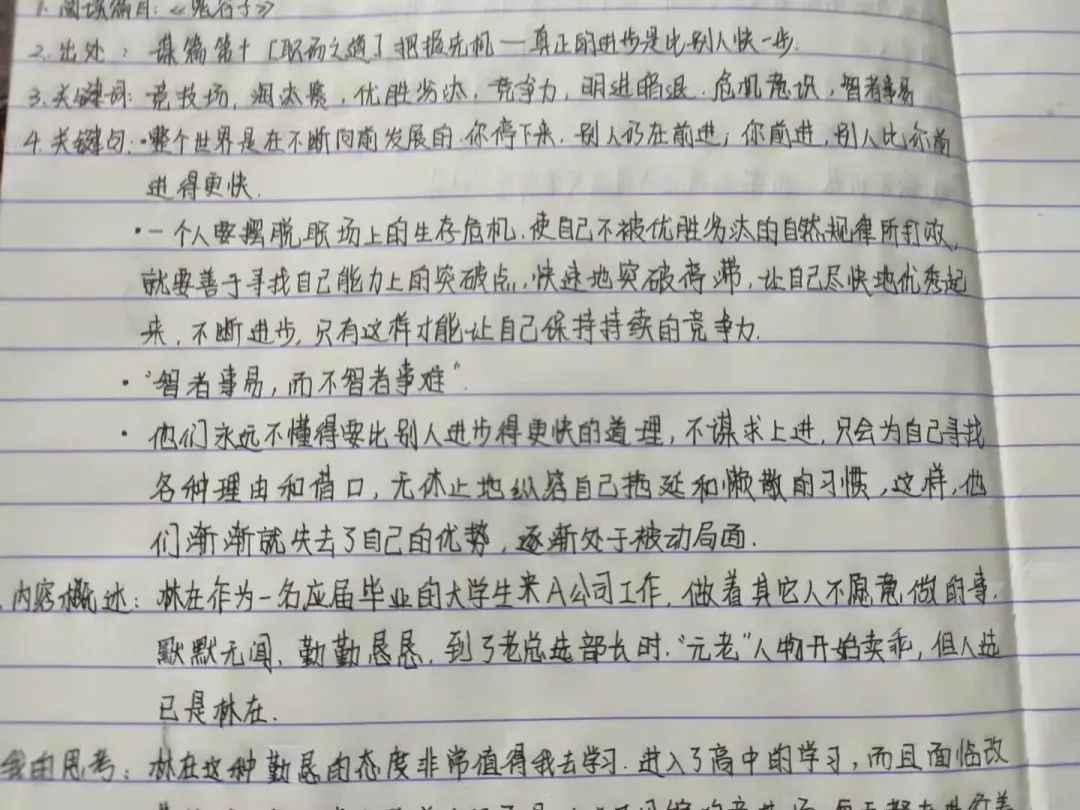 1. 阅读篇目：《鬼谷子》
2. 出处：谋篇第十［职场之道］把握先机——真正的进步是比别人快一步.
3. 关键词：竞技场，淘汰赛，优胜劣汰，竞争力，明进暗退，危机意识，智者事易
4. 关键句：·整个世界是在不断向前发展的.你停下来，别人仍在前进；你前进，别人比你前
进得更快.
·一个人要摆脱职场上的生存危机，使自己不被优胜劣汰的自然规律所打败，
就要善于寻找自己能力上的突破点，快速地突破停滞，让自己尽快地优秀起
来，不断进步，只有这样才能让自己保持持续的竞争力.
·“智者事易，而不智者事难”.
·他们永远不懂得要比别人进步得更快的道理，不谋求上进，只会为自己寻找
各种理由和借口，无休止地纵容自己拖延和懒散的习惯，这样，他
们渐渐就失去了自己的优势，逐渐处于被动局面.
内容概述：林在作为一名应届毕业的大学生来A公司工作，做着其它人不愿意做的事，
默默无闻，勤勤恳恳，到了老总选部长时，“元老”人物开始卖乖，但人选
已是林在.
我的思考：林在这种勤恳的态度非常值得我去学习.进入了高中的学习，而且面临改